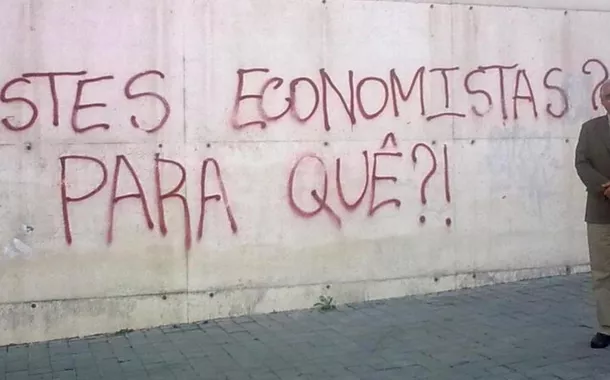 STES ECONOMISTAS?
PARA QUÊ?!